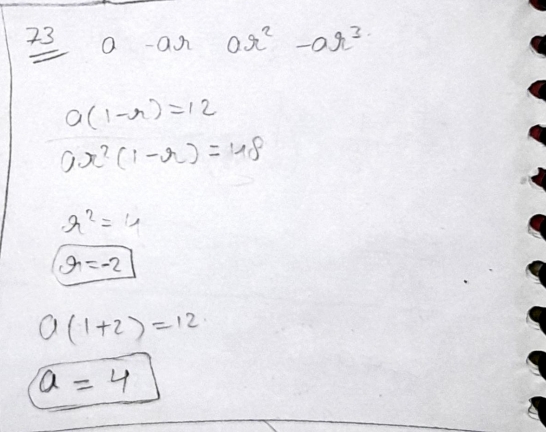 73 a -ar ar² -ar³.
a(1-r)=12
ar²(1-r)=48
r²=4
r=-2
a(1+2)=12
a = 4